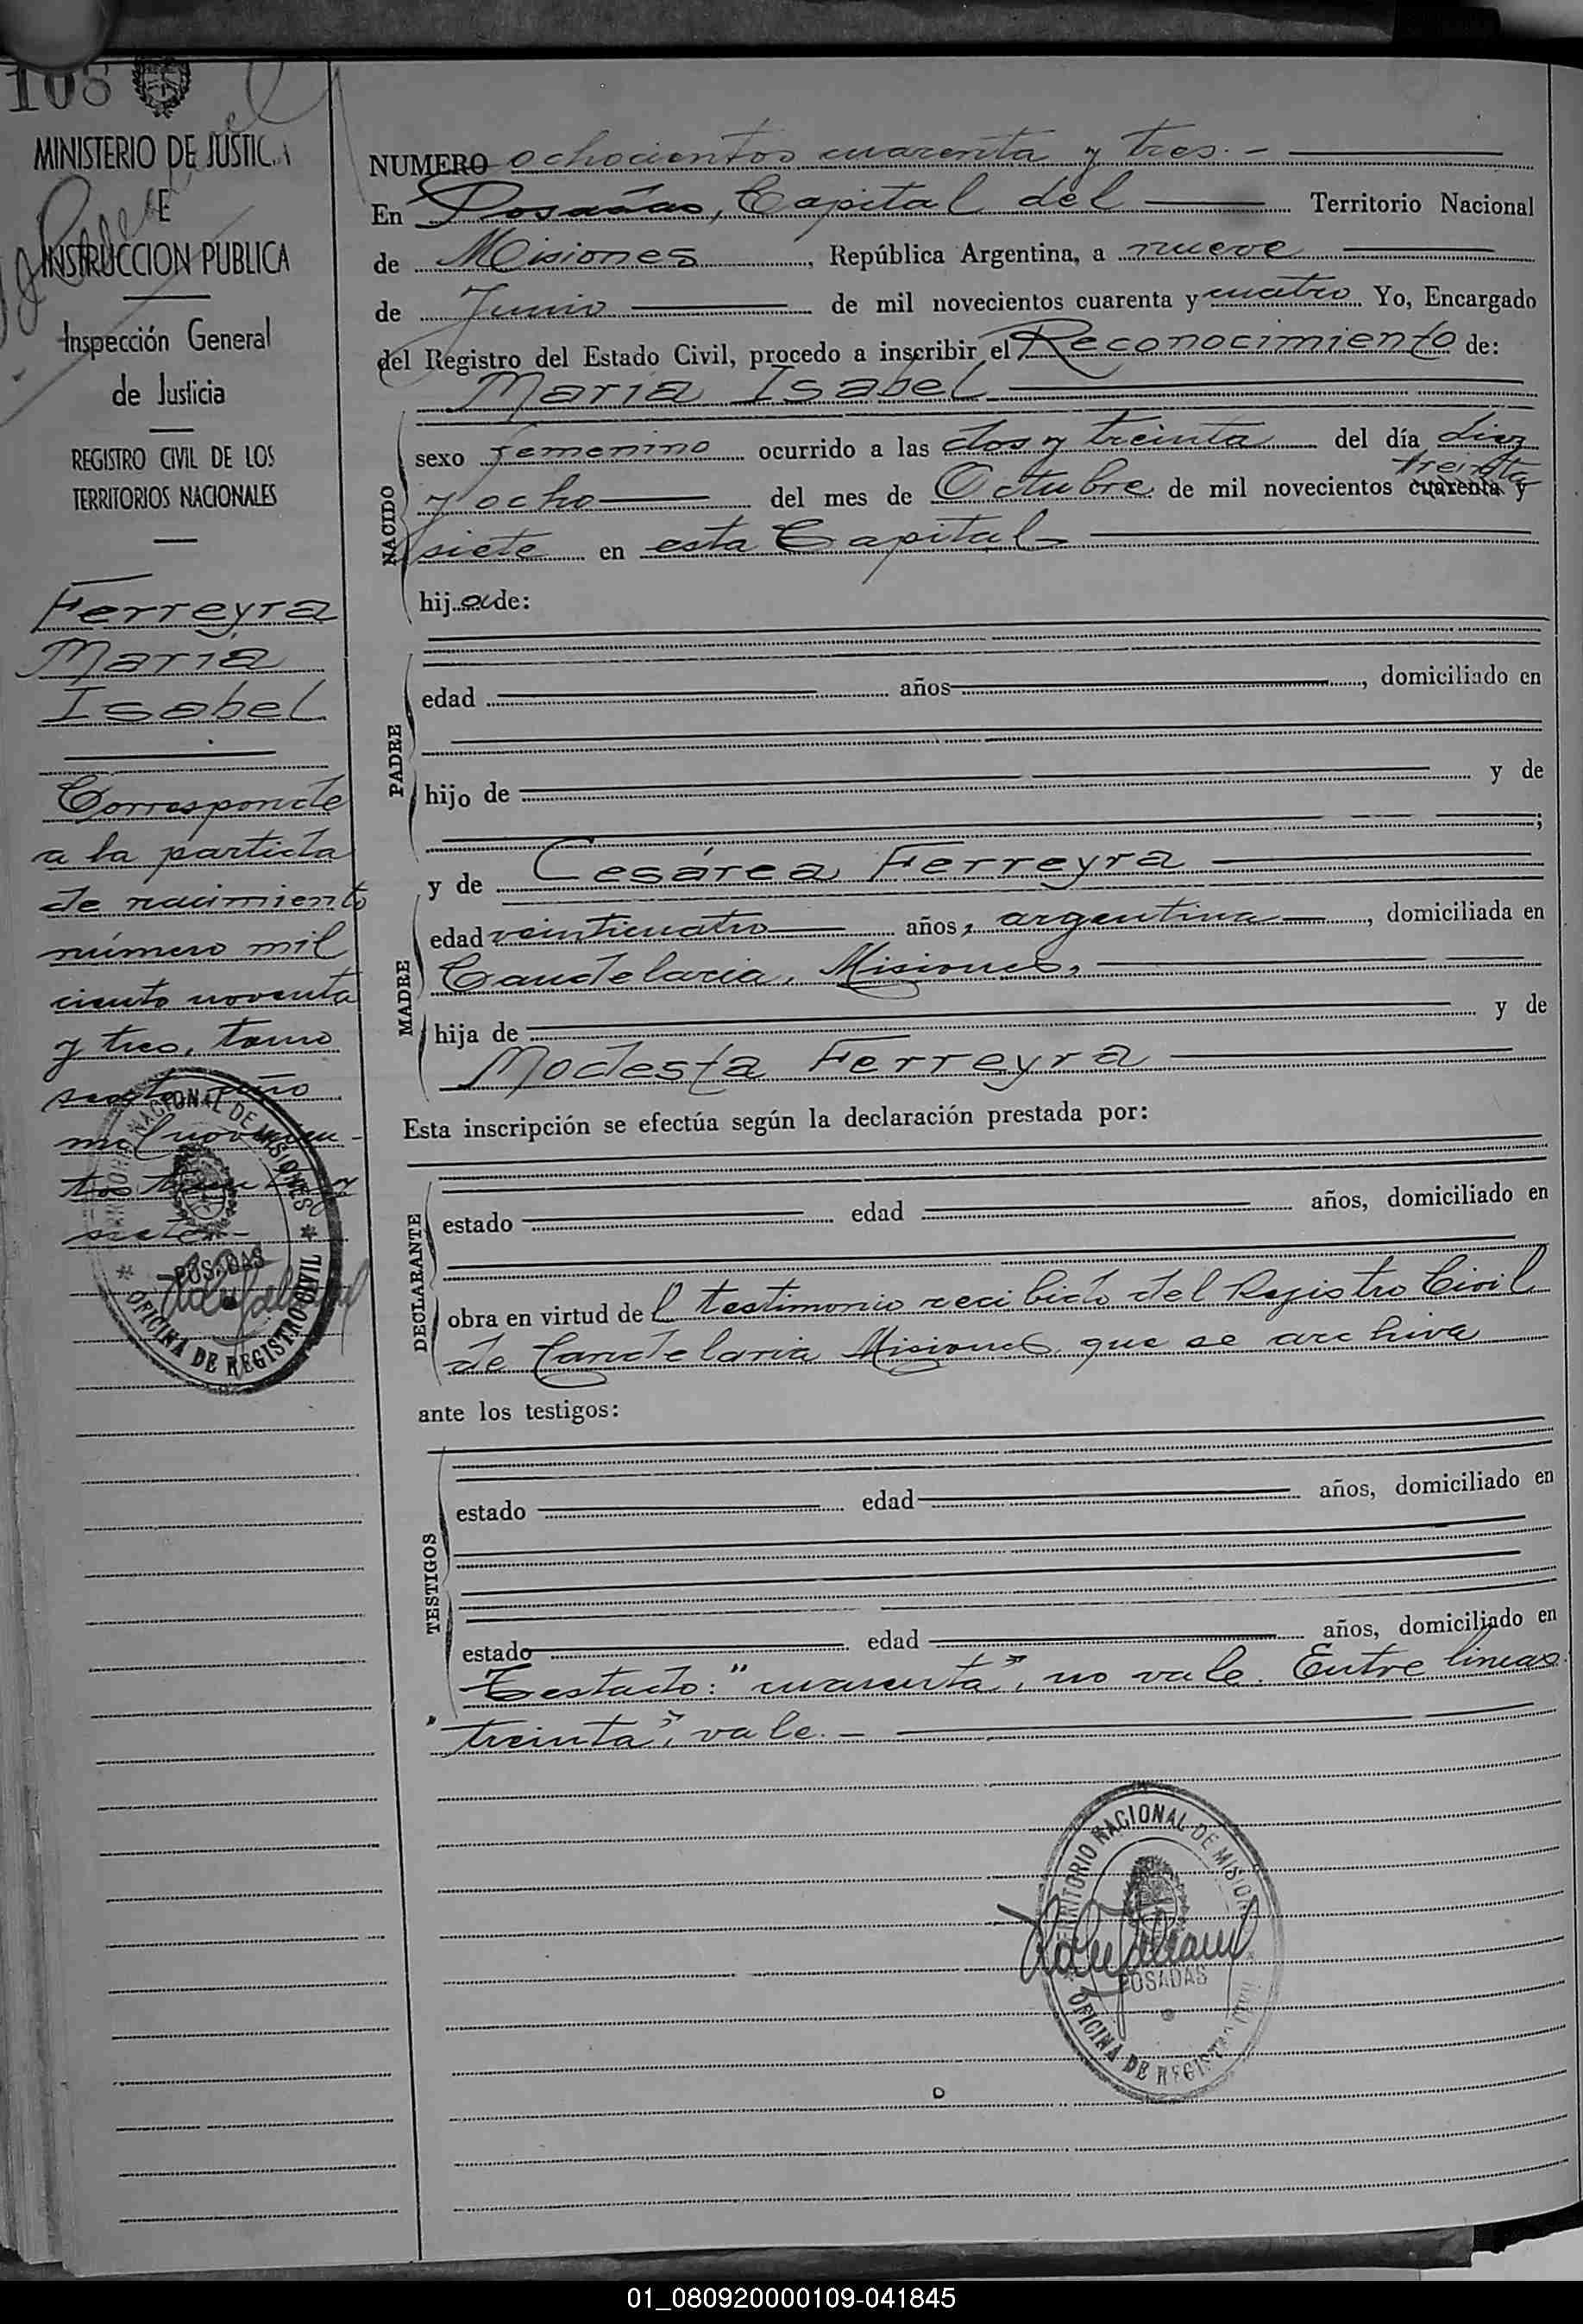 108
MINISTERIO DE JUSTICIA
E
INSTRUCCION PUBLICA
Inspección General
de Justicia
REGISTRO CIVIL DE LOS
TERRITORIOS NACIONALES
Ferreyra
María
Isabel
Corresponde
a la partida
de nacimiento
número mil
ciento noventa
y tres, tomo
año
mil novecien-
tos treinta y
siete.-
TERRITORIO NACIONAL DE MISIONES
POSADAS
OFICINA DE REGISTRO CIVIL
NUMERO ochocientos cuarenta y tres.-
En Posadas, Capital del Territorio Nacional
de Misiones, República Argentina, a nueve
de Junio de mil novecientos cuarenta y cuatro Yo, Encargado
del Registro del Estado Civil, procedo a inscribir el Reconocimiento de:
María Isabel
NACIDO
sexo femenino ocurrido a las dos y treinta del día diez
treinta
y ocho del mes de Octubre de mil novecientos cuarenta y
siete en esta Capital-
hija de:
PADRE
edad años, domiciliado en
hijo de y de
;
MADRE
y de Cesárea Ferreyra
edad veinticuatro años, argentina, domiciliada en
Candelaria, Misiones,
hija de y de
Modesta Ferreyra
Esta inscripción se efectúa según la declaración prestada por:
DECLARANTE
estado edad años, domiciliado en
obra en virtud del testimonio recibido del Registro Civil
de Candelaria Misiones, que se archiva
ante los testigos:
TESTIGOS
estado edad años, domiciliado en
estado edad años, domiciliado en
Testado: "cuarenta", no vale. Entre líneas
"treinta", vale.-
TERRITORIO NACIONAL DE MISIONES
POSADAS
OFICINA DE REGISTRO CIVIL
01_080920000109-041845